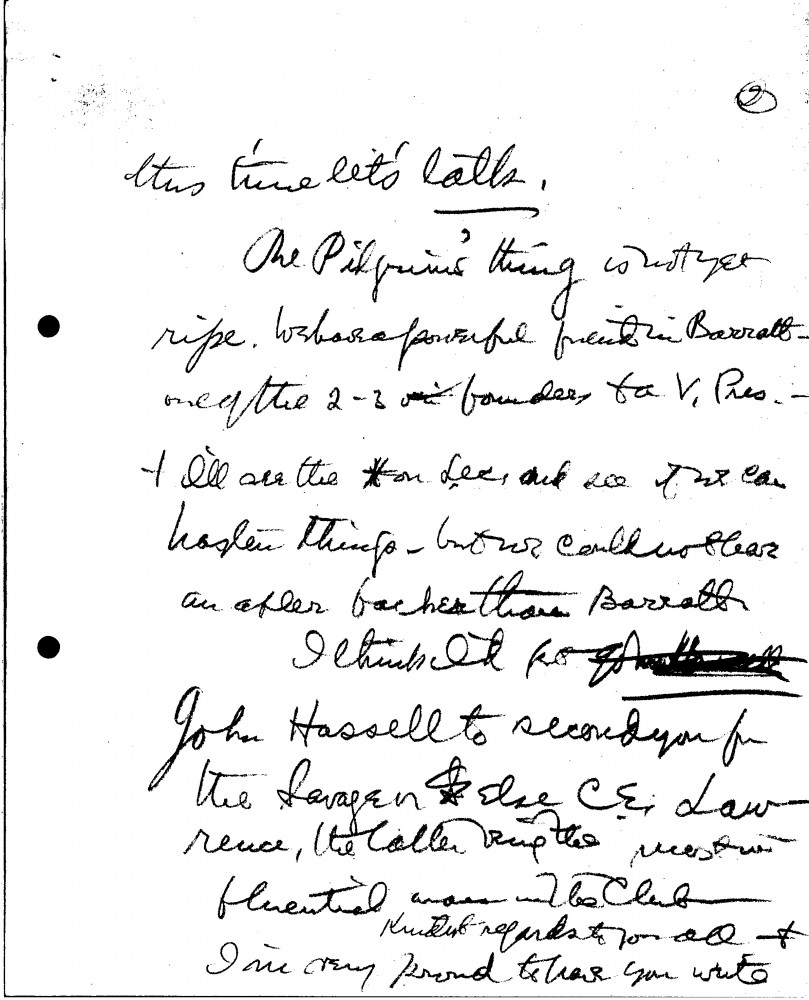 2
this time let's talk.
The Pilgrims' thing is not yet
ripe. We have a powerful friend in Barratt –
one of the 2-3 founders & a V. Pres. –
+ I'll see the Hon Sec, and see if we can
hasten things – but we could not have
an abler backer than Barratt
I think I'd get
John Hassell to second you for
the Savage or Else C.E. Law-
rence, the latter being the most in-
fluential man in the Club
Kindest regards to you all +
I'm very proud to have you write